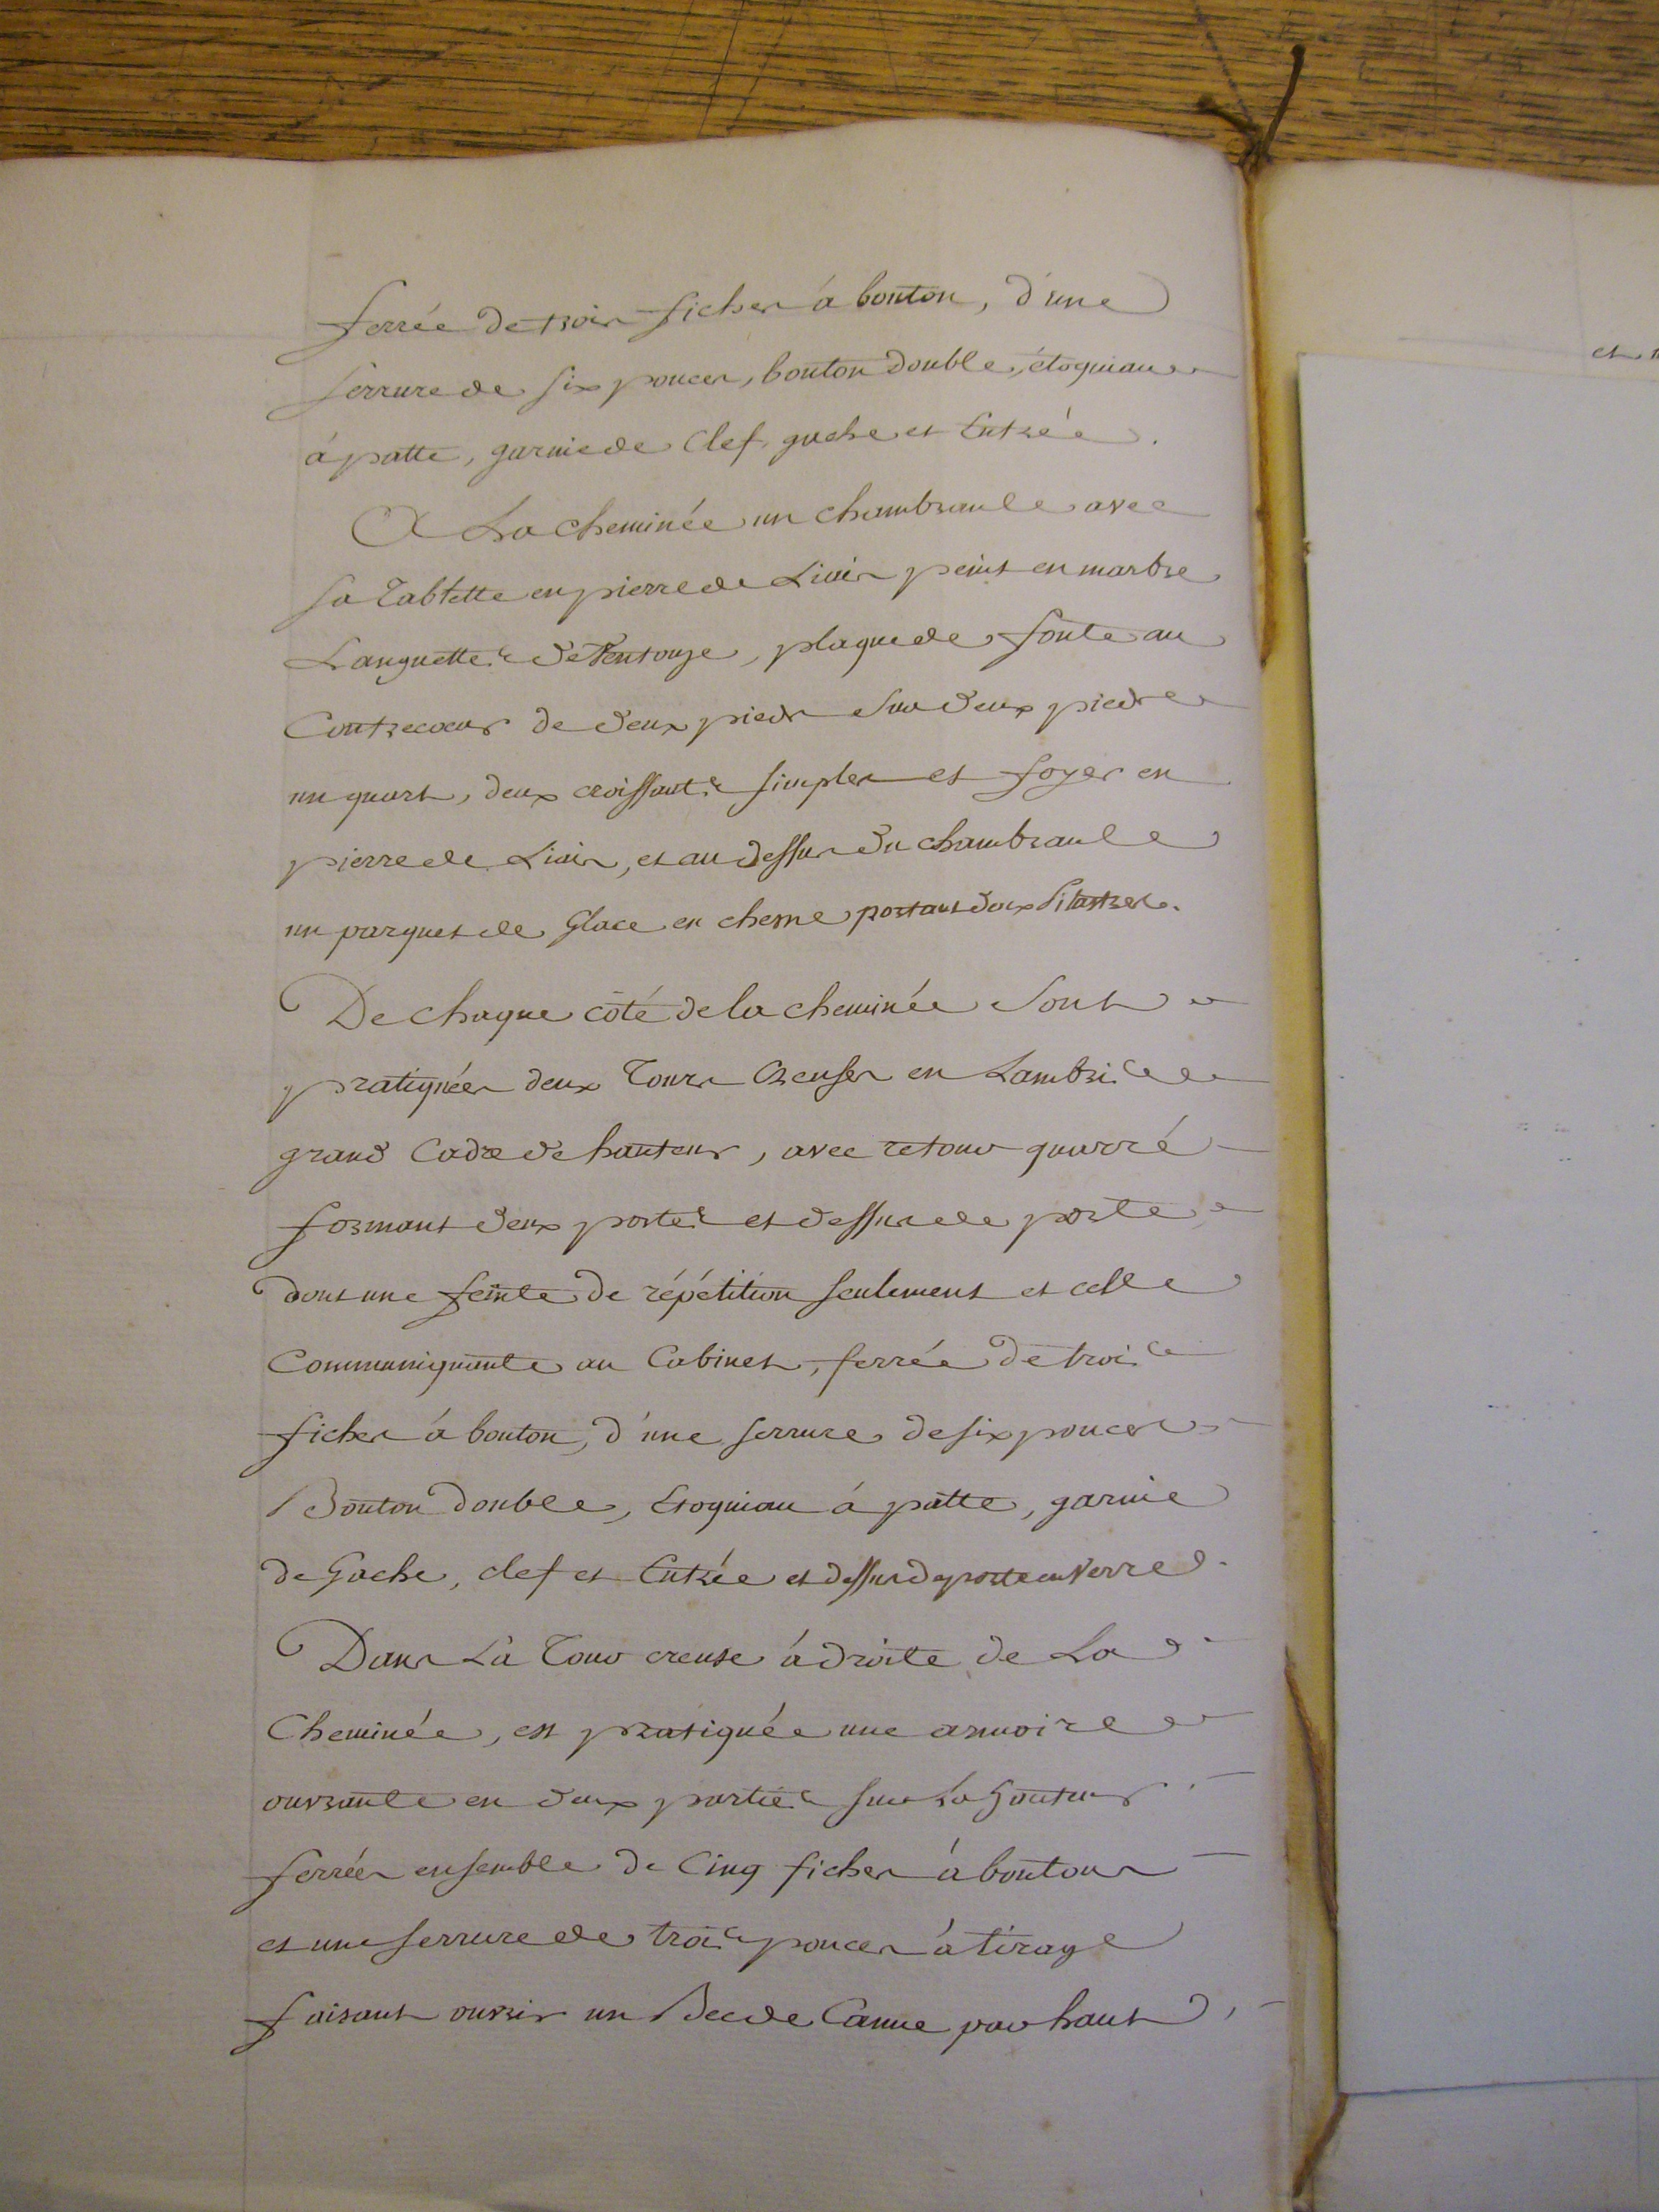 ferrée de trois fiches à bouton, d'une
serrure de six pouces, bouton double, étoquiau
à patte, garnie de Clef, gache et Entrée.
A La cheminée un chambranle avec
sa Tablette en pierre de Liais peint en marbre
Languettes de Ventouze, plaque de fonte au
Contrecoeur de deux pieds sur deux pieds
un quart, deux croissants simples et foyer en
pierre de Liais, et au dessus du chambranle
un parquet de Glace en chesne portant deux Pilastres.
De chaque côté de la cheminée sont
pratiquées deux Tours Creuses en Lambris
grand Cadre de hauteur, avec retour quarré
formant deux portes et dessus de porte
dont une feinte de répétition seulement et celle
Communiquante au Cabinet, ferrée de trois
fiches à bouton, d'une serrure de six pouces
Bouton double, Etoquiau à patte, garnie
de Gache, clef et Entrée et dessus de porte en Verre.
Dans La Tour creuse à droite de La
Cheminée, est pratiquée une armoire
ouvrante en deux parties sur La hauteur
ferrées ensemble de Cinq fiches à boutons
et une serrure de trois pouces à tirage
faisant ouvrir un Bec de Canne par haut,
et